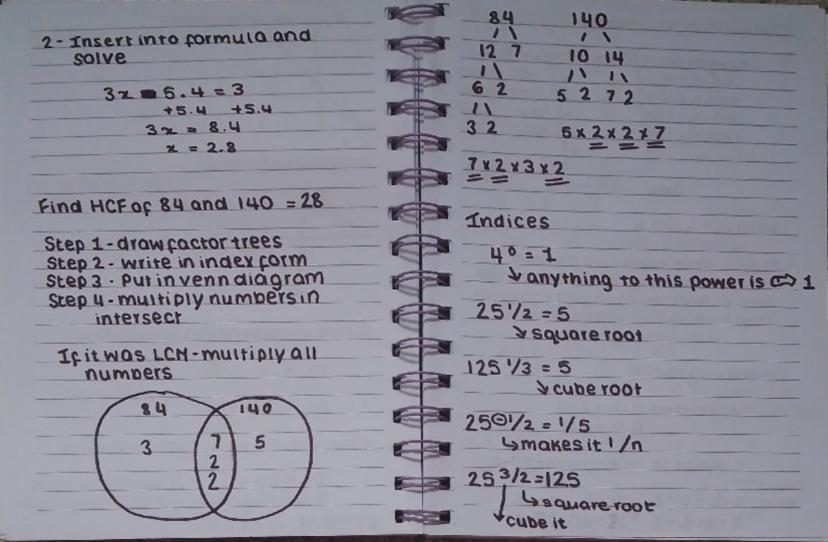 2 - Insert into formula and
solve
3x - 5.4 = 3
+5.4 +5.4
3x = 8.4
x = 2.8
Find HCF of 84 and 140 = 28
Step 1 - draw factor trees
Step 2 - write in index form
Step 3 - Put in venn diagram
Step 4 - multiply numbers in
intersect
If it was LCM - multiply all
numbers
84 140
3 7 5
2
2
84 140
12 7 10 14
6 2 5 2 7 2
3 2 5 x 2 x 2 x 7
7 x 2 x 3 x 2
Indices
4⁰ = 1
↳ anything to this power is ⇨ 1
25 1/2 = 5
↳ square root
125 1/3 = 5
↳ cube root
25 ⊖1/2 = 1/5
↳ makes it 1/n
25 3/2 = 125
↳ square root
cube it